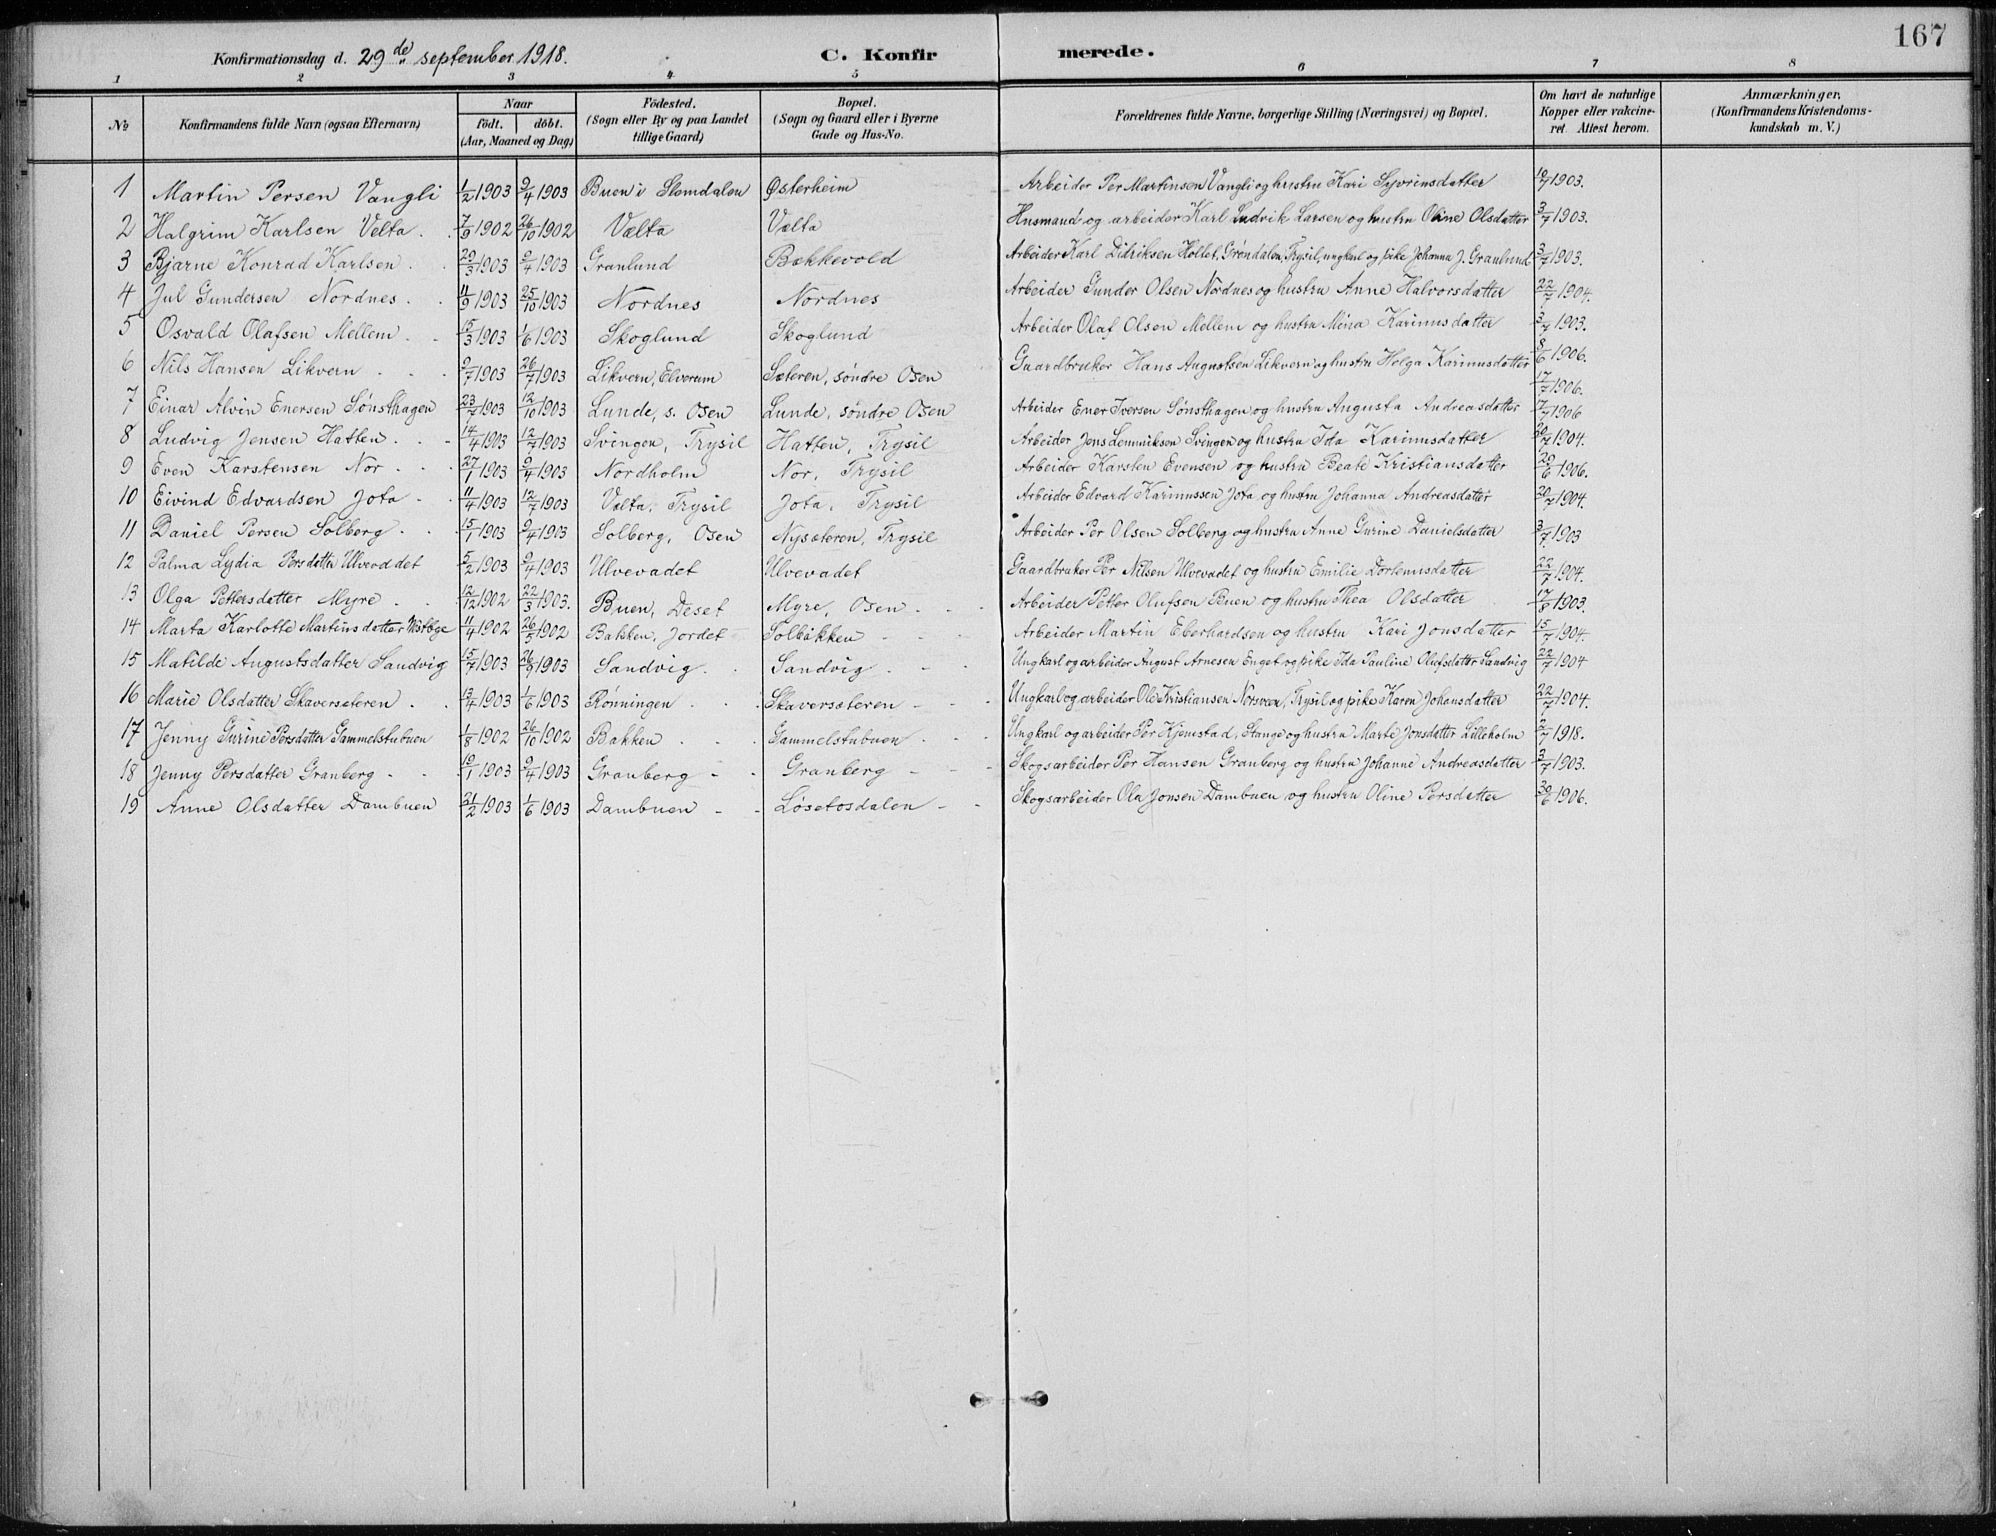 167
Konfirmationsdag d. 29de september 1918. C. Konfirmerede.
1 2 3 4 5 6 7 8
No Konfirmandens fulde Navn (ogsaa Efternavn) Naar födt. döbt. (Aar, Maaned og Dag) Födested. (Sogn eller By og paa Landet tillige Gaard) Bopæl. (Sogn og Gaard eller i Byerne Gade og Hus-No. Forældrenes fulde Navne, borgerlige Stilling (Næringsvei) og Bopæl. Om havt de naturlige Kopper eller vakcineret. Attest herom. Anmærkninger. (Konfirmandens Kristendomskundskab m. V.)
1 Martin Persen Vangli 1/2 1903 9/4 1903 Buen i Slemdalen Østerheim Arbeider Per Martinsen Vangli og hustru Kari Syvrinsdatter 1903.
2 Halgrim Karlsen Velta. 7/9 1902 26/10 1902 Vælta Vælta Husmand og arbeider Karl Ludvik Larsen og hustru Oline Olsdatter 3/7 1903.
3 Bjarne Konrad Karlsen. 29/3 1903 9/4 1903 Granlund Bækkevold Arbeider Karl Didriksen Holtet, Grøndalen, Trysil, ungkarl og pike Johanna J. Granlund 3/7 1903.
4 Jul Gundersen Nordnes. 11/9 1903 25/10 1903 Nordnes Nordnes Arbeider Gunder Olsen Nordnes og hustru Anne Halvorsdatter 22/7 1904.
5 Osvald Olafsen Mellem. 15/3 1903 1/6 1903 Skoglund Skoglund Arbeider Olaf Olsen Mellem og hustru Mina Karinusdatter 3/7 1903.
6 Nils Hansen Likvern 9/7 1903 26/7 1903 Likvern, Elverum Sæteren, søndre Osen Gaardbruker Hans Augustsen Likvern og hustru Helga Karinusdatter 8/6 1906.
17/7 1906.
7 Einar Alvin Enersen Sønsthagen 23/7 1903 12/10 1903 Lunde, s. Osen Lunde, søndre Osen Arbeider Ener Iversen Sønsthagen og hustru Augusta Andreasdatter 17/7 1906
8 Ludvig Jensen Hatten. 14/4 1903 12/7 1903 Svingen, Trysil Hatten, Trysil Arbeider Jens Svingen og hustru Ida Karinusdatter 20/7 1904.
9 Even Karstensen Nor 27/1 1903 9/4 1903 Nordholm Nor, Trysil Arbeider Karsten Evensen og hustru Beate Kristiansdatter 29/6 1906.
10 Eivind Edvardsen Jota 11/4 1903 12/7 1903 Vælta, Trysil Jota, Trysil Arbeider Edvard Karinussen Jota og hustru Johanna Andreasdatter 20/7 1904.
11 Daniel Persen Solberg. 15/1 1903 9/4 1903 Solberg, Osen Nysæteren, Trysil Arbeider Per Olsen Solberg og hustru Anne Gurine Danielsdatter 3/7 1903
12 Palma Lydia Persdatter Ulvevadet 5/2 1903 9/4 1903 Ulvevadet Ulvevadet Gaardbruker Per Nilsen Ulvevadet og hustru Emilie Dortemsdatter 22/7 1904.
13 Olga Pettersdatter Myre. 12/12 1902 22/3 1903. Buen, Deset Myre, Osen. Arbeider Petter Olufsen Buen og hustru Thea Olsdatter 17/8 1903.
14 Marta Karlotte Martinsdatter 11/4 1902 26/5 1902 Bakken, Jordet Solbakken Arbeider Martin Eberhardsen og hustru Kari Jonsdatter 15/7 1904.
15 Matilde Augustsdatter Sandvig 15/7 1903 26/9 1903 Sandvig. Sandvig. Ungkarl og arbeider August Arnesen Enget og pike Ida Pauline Olufsdatter Sandvig 22/7 1904
16 Marie Olsdatter Skaversæteren. 13/4 1903 1/6 1903 Rønningen Skaversæteren Ungkarl og arbeider Ole Kristiansen Norsveen, Trysil og pike Karen Johansdatter 22/7 1904.
17 Jenny Gurine Persdatter Gammelstubuen 1/8 1902 26/10 1902 Bakken Gammelstubuen. Ungkarl og arbeider Per Kjemstad, Stange og hustru Marte Jonsdatter Lilleholm 2/7 1918.
18 Jenny Persdatter Granberg 19/1 1903 9/4 1903 Granberg Granberg Skogsarbeider Per Hansen Granberg og hustru Johanne Andreasdatter 3/7 1903.
19 Anne Olsdatter Dambuen 21/2 1903 1/6 1903 Dambuen Løsetosdalen Skogsarbeider Ola Jonsen Dambuen og hustru Oline Persdatter 30/6 1906.